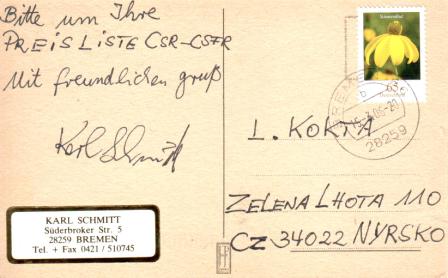 Bitte um Ihre
PREISLISTE CSR-CSFR
Mit freundlichen gruß
Karl Schmitt
KARL SCHMITT
Süderbroker Str. 5
28259 BREMEN
Tel. + Fax 0421 / 510745
Sonnenhut
BREMEN
b
28259
L. KOKTA
ZELENA LHOTA 110
CZ 34022 NYRSKO